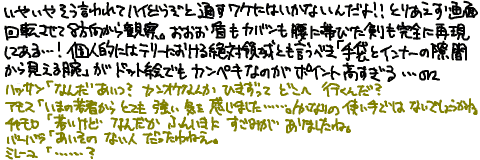 いやいやそう言われてハイどうぞと通すワケにはいかないんだよ!! とりあえず画面
回転させて8方向から観察。おおお盾もカバンも腰に帯びた剣も完全に再現
してある…! 個人的にはテリーにおける絶対領域とも言うべき「手袋とインナーの隙間
から見える腕」がドット絵でもカンペキなのがポイント高すぎる…orz
ハッサン「なんだあいつ? カンオケなんか ひきずって どこへ 行くんだ?
アモス「いまの若者から とても 強い 気を 感じました……。かなりの 使い手では ないでしょうかね。
チャモロ「若いけど なんだか ふんいきに すごみが ありましたね。
バーバラ「あいその ない人 だったわねえ。
ミレーユ「……?